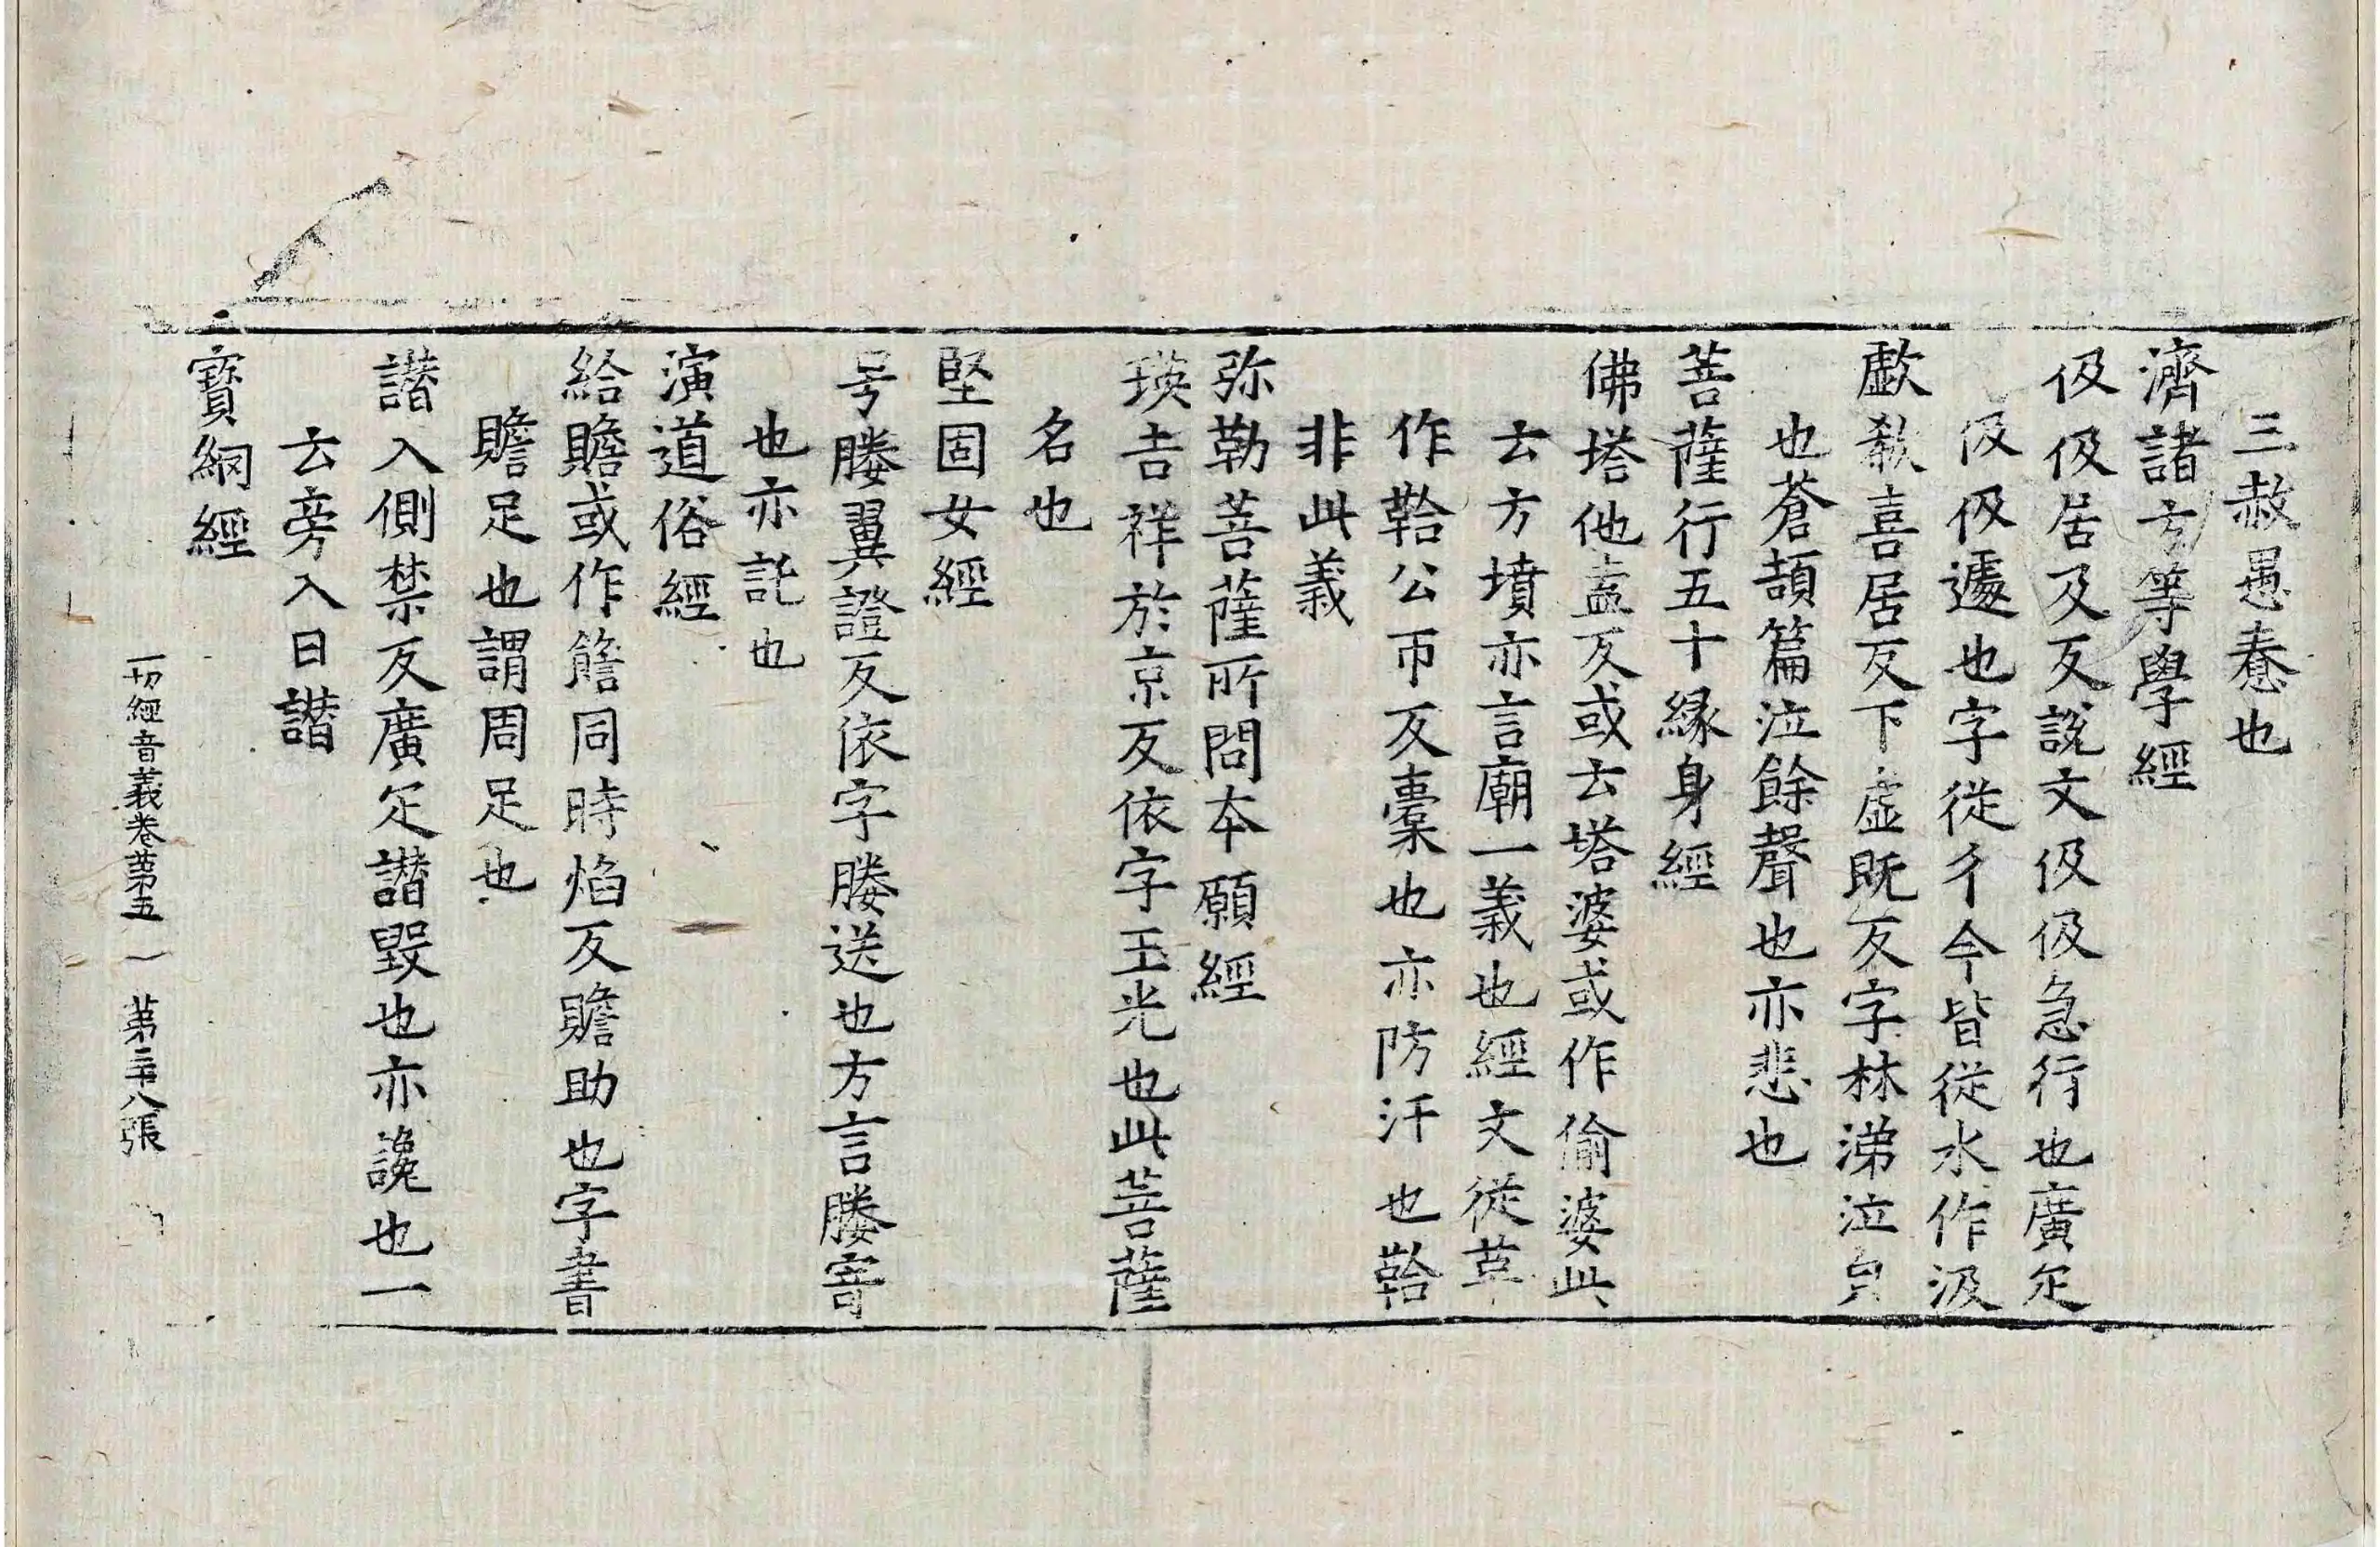 三赦愚惷也
濟諸方等學經
伋伋居及反說文伋伋急行也廣疋
伋伋遽也字從彳今皆從水作汲
歔欷喜居反下虛既反字林涕泣皃
也蒼頡篇泣餘聲也亦悲也
菩薩行五十緣身經
佛塔他盍反或云塔婆或作偷婆此
云方墳亦言廟一義也經文從革
作鞈公帀反橐也亦防汗也鞈
非此義
弥勒菩薩所問本願經
瑛吉祥於京反依字玉光也此菩薩
名也
堅固女經
号媵翼證反依字媵送也方言媵寄
也亦託也
演道俗經
給贍或作䪜同時焰反贍助也字書
贍足也謂周足也
譖入側禁反廣疋譖毀也亦讒也一
云旁入曰譖
寳網經
一切經音義卷苐五 苐三十八張